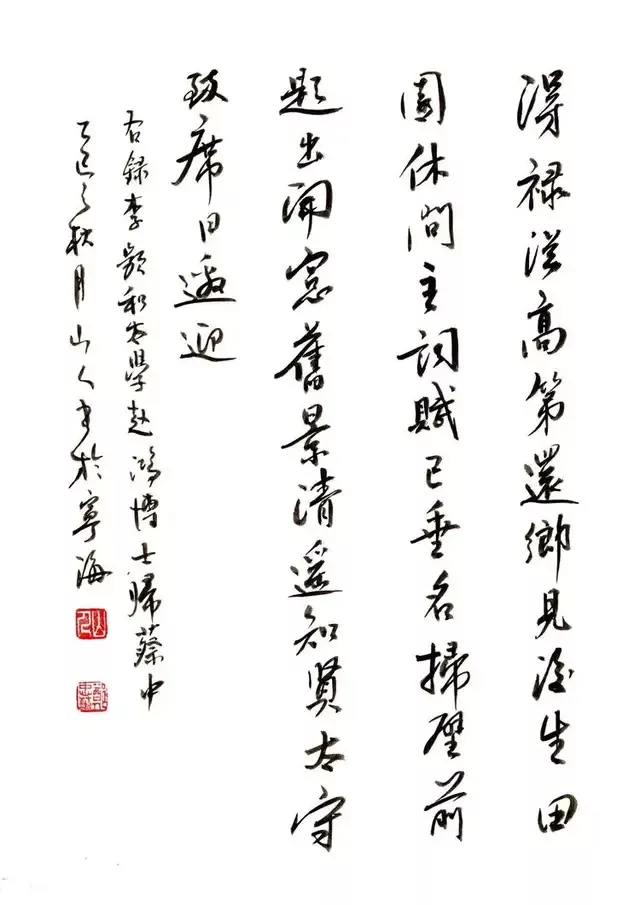 得禄從高第還鄉見後生田
園休問主詞賦已垂名掃壁前
題出開窓舊景清遥知賢太守
致席日邀迎
右録李頻和太學趙鴻博士歸蔡中
乙巳之秋月山人書於寧海
山人